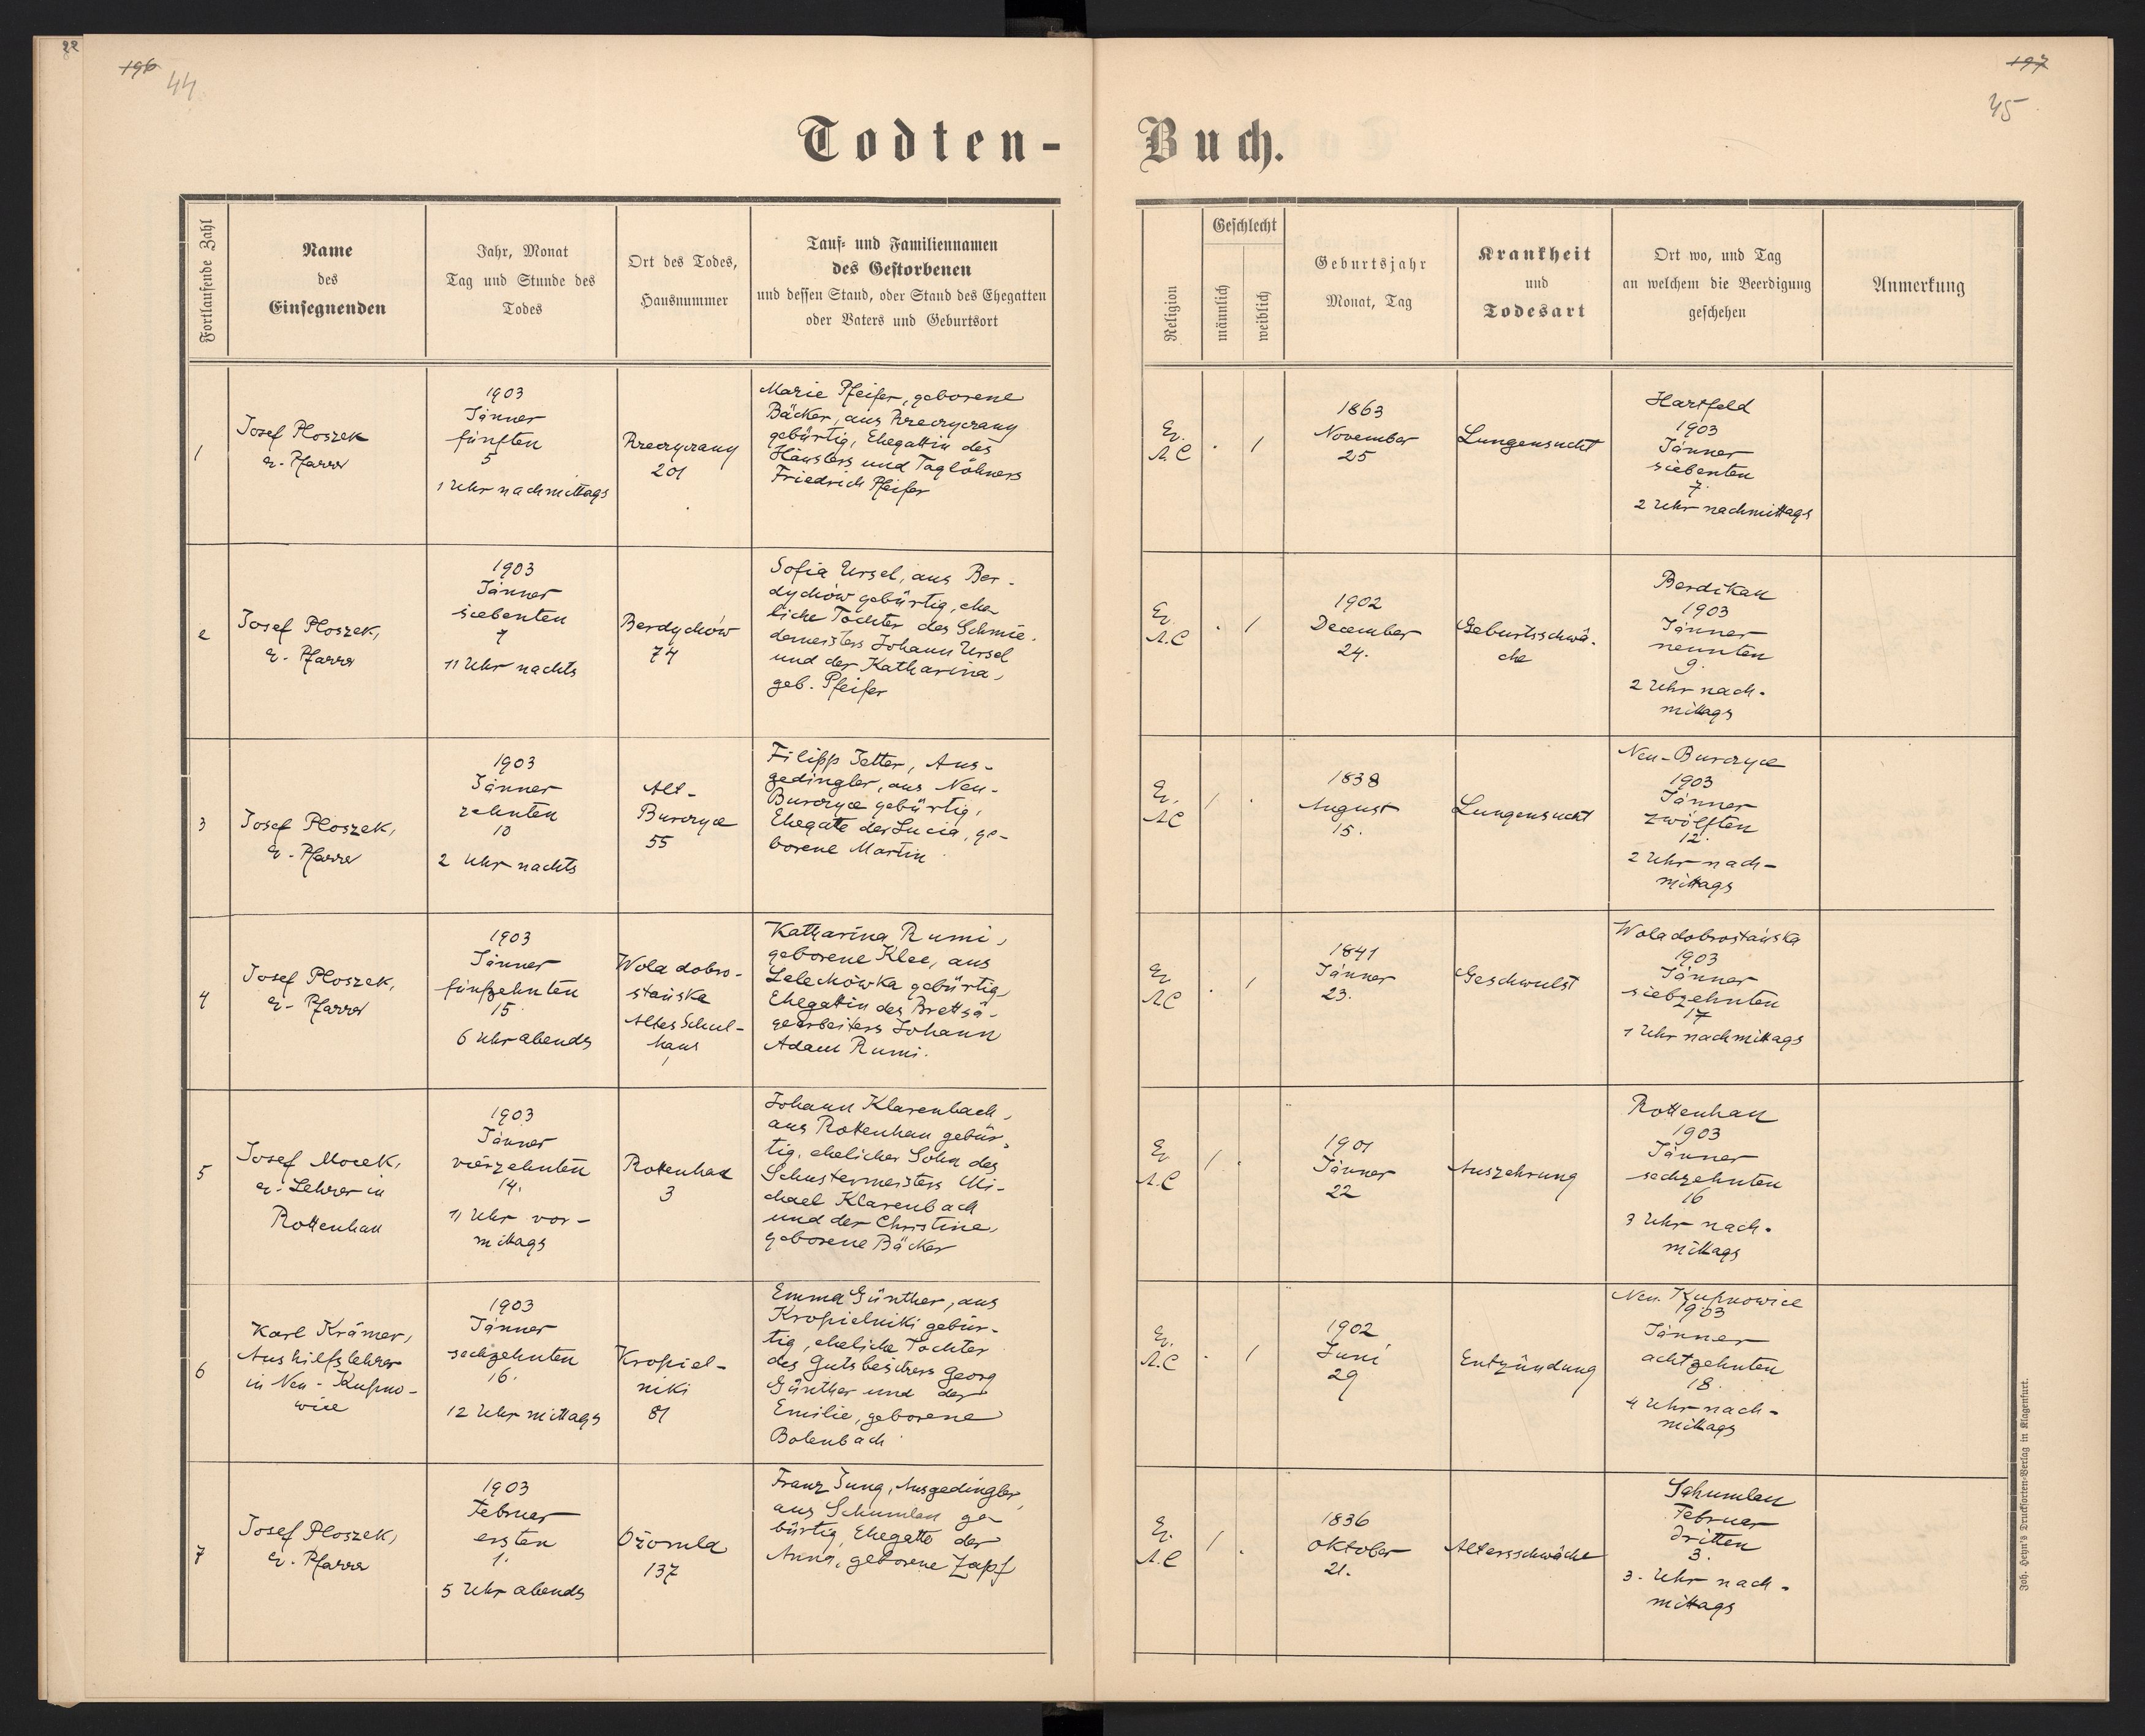 22
196
44
197
45
Todten-
Buch.
Fortlaufende Zahl
Name
des
Einsegnenden
Jahr, Monat
Tag und Stunde des
Todes
Ort des Todes,
Hausnummer
Tauf- und Familiennamen
des Gestorbenen
und dessen Stand, oder Stand des Ehegatten
oder Vaters und Geburtsort
Religion
Geschlecht
männlich
weiblich
Geburtsjahr
Monat, Tag
Krankheit
und
Todesart
Ort wo, und Tag
an welchem die Beerdigung
geschehen
Anmerkung
1
Josef Ploszek
ev. Pfarrer
1903
Jänner
fünften
5
1 Uhr nachmittags
Rzeczyczany
201
Marie Pfeifer, geborene
Bäcker, aus Rzeczyczany
gebürtig, Ehegattin des
Häuslers und Taglöhners
Friedrich Pfeifer
Ev.
A.C
. 1
1863
November
25
Lungensucht
Hartfeld
1903
Jänner
siebenten
7.
2 Uhr nachmittags
2
Josef Ploszek,
ev. Pfarrer
1903
Jänner
siebenten
7
11 Uhr nachts
Berdychów
74
Sofia Ursel, aus Ber-
dychów gebürtig, ehe
liche Tochter des Schmie-
demeisters Johann Ursel
und der Katharina,
geb. Pfeifer
Ev.
A.C
. 1
1902
December
24.
Geburtsschwä-
che
Berdikau
1903
Jänner
neunten
9.
2 Uhr nach-
mittags
3
Josef Ploszek,
ev. Pfarrer
1903
Jänner
zehnten
10
2 Uhr nachts
Alt-
Burczyce
55
Filipp Jetter, Aus-
gedingler, aus Neu-
Burczyce gebürtig,
Ehegatte der Lucia, ge-
borene Martin
Ev.
AC
1 .
1838
August
15.
Lungensucht
Neu-Burczyce
1903
Jänner
zwölften
12.
2 Uhr nach-
mittags
4
Josef Ploszek,
ev. Pfarrer
1903
Jänner
fünfzehnten
15
6 Uhr abends
Wola dobro-
stańska
Altes Schul-
haus
Katharina Rumi,
geborene Klee, aus
Lelechówka gebürtig,
Ehegattin des Brettsä-
gearbeiters Johann
Adam Rumi.
Ev
AC
. 1
1841
Jänner
23.
Geschwulst
Wola dobrostańska
1903
Jänner
siebzehnten
17
1 Uhr nachmittags
5
Josef Mocek,
ev. Lehrer in
Rottenhan
1903
Jänner
vierzehnten
14.
11 Uhr vor-
mittags
Rottenhan
3
Johann Klarenbach,
aus Rottenhan gebür-
tig, ehelicher Sohn des
Schustermeisters Mi-
chael Klarenbach
und der Christine,
geborene Bäcker
Ev
A.C
1 .
1901
Jänner
22
Auszehrung
Rottenhan
1903
Jänner
sechzehnten
16
3 Uhr nach-
mittags
6
Karl Krämer,
Aushilfslehrer
in Neu-Kupno-
wice
1903
Jänner
sechzehnten
16.
12 Uhr mittags
Kropiel-
niki
81
Emma Günther, aus
Kropielniki gebür-
tig, eheliche Tochter
des Gutsbesitzers Georg
Günther und der
Emilie, geborene
Bolenbach
Ev.
A.C
. 1
1902
Juni
29
Entzündung
Neu-Kupnowice
1903
Jänner
achtzehnten
18.
4 Uhr nach-
mittags
7
Josef Ploszek,
ev. Pfarrer
1903
Februer
ersten
1.
5 Uhr abends
Ożomla
137
Franz Jung, Ausgedingler,
aus Schumlau ge-
bürtig, Ehegatte der
Anna, geborene Zapf
Ev.
A.C
1 .
1836
Oktober
21.
Altersschwäche
Schumlau
Februer
dritten
3.
3. Uhr nach-
mittags
Joh. Heyn's Drucksorten-Verlag in Klagenfurt.